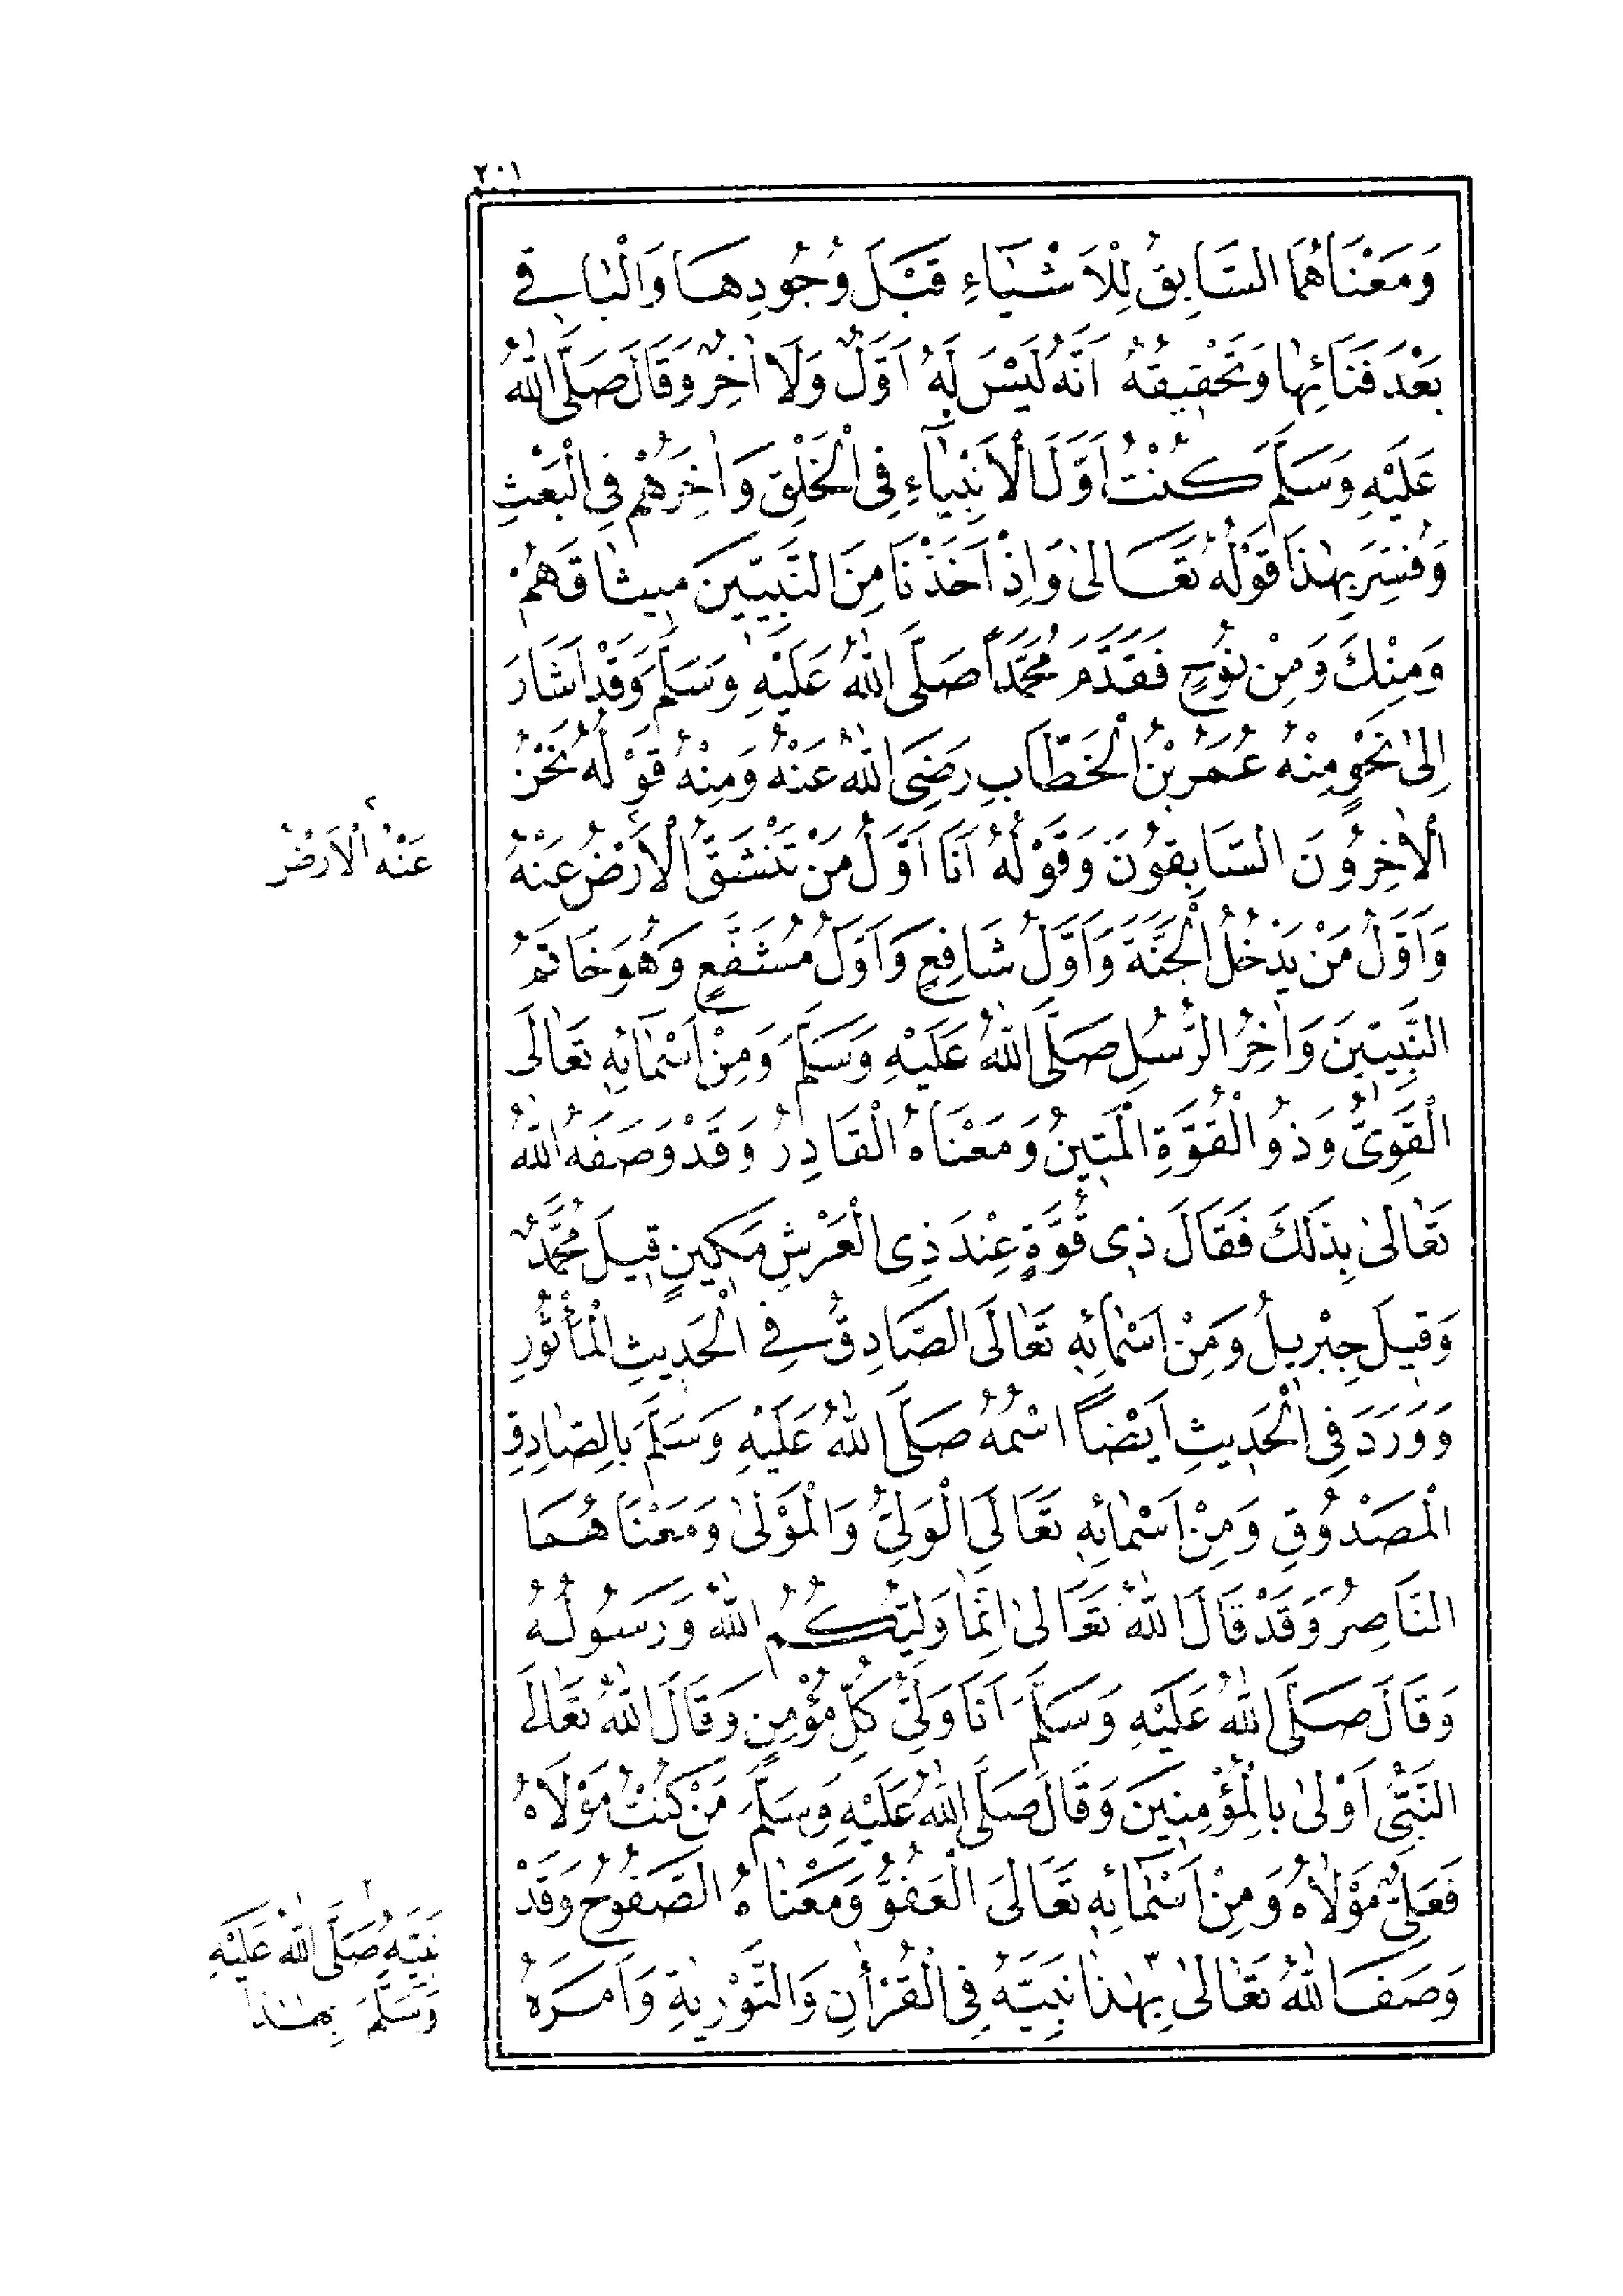 ٢٠١
وَمَعْنَاهُمَا السَّابِقُ لِلْاَشْيَٓاءِ قَبْلَ وُجُودِهَا وَالْبَاقِي
بَعْدَ فَنَائِهَا وَتَحْقِيقُهُ اَنَّهُ لَيْسَ لَهُ اَوَّلٌ وَلَا اٰخِرٌ وَقَالَ صَلَّى اللّٰهُ
عَلَيْهِ وَسَلَّمَ كُنْتُ اَوَّلَ الْاَنْبِيَٓاءِ فِى الْخَلْقِ وَاٰخِرَهُمْ فِى الْبَعْثِ
وَفُسِّرَ بِهٰذَا قَوْلُهُ تَعَالىٰ وَاِذْ اَخَذْنَا مِنَ النَّبِيّٖنَ مِيثَاقَهُمْ
وَمِنْكَ وَمِنْ نُوحٍ فَقَدَّمَ مُحَمَّدًا صَلَّى اللّٰهُ عَلَيْهِ وَسَلَّمَ وَقَدْ اَشَارَ
اِلىٰ نَحْوٍ مِنْهُ عُمَرُ بْنُ الْخَطَّابِ رَضِىَ اللّٰهُ عَنْهُ وَمِنْهُ قَوْلُهُ نَحْنُ
الْاٰخِرُونَ السَّابِقُونَ وَقَوْلُهُ اَنَا اَوَّلُ مَنْ تَنْشَقُّ الْاَرْضُ عَنْهُ
عَنْهُ الْاَرْضُ
وَاَوَّلُ مَنْ يَدْخُلُ الْجَنَّةَ وَاَوَّلُ شَافِعٍ وَاَوَّلُ مُشَفَّعٍ وَهُوَ خَاتَمُ
النَّبِيّٖنَ وَاٰخِرُ الرُّسُلِ صَلَّى اللّٰهُ عَلَيْهِ وَسَلَّمَ وَمِنْ اَسْمَائِهِ تَعَالَى
الْقَوِىُّ وَذُو الْقُوَّةِ الْمَتِينُ وَمَعْنَاهُ الْقَادِرُ وَقَدْ وَصَفَهُ اللّٰهُ
تَعَالىٰ بِذٰلِكَ فَقَالَ ذِى قُوَّةٍ عِنْدَ ذِى الْعَرْشِ مَكِينٍ قِيلَ مُحَمَّدٌ
وَقِيلَ جِبْرِيلُ وَمِنْ اَسْمَائِهِ تَعَالَى الصَّادِقُ فِى الْحَدِيثِ الْمَأْثُورِ
وَوَرَدَ فِى الْحَدِيثِ اَيْضًا اسْمُهُ صَلَّى اللّٰهُ عَلَيْهِ وَسَلَّمَ بِالصَّادِقِ
الْمَصْدُوقِ وَمِنْ اَسْمَائِهِ تَعَالَى الْوَلِىُّ وَالْمَوْلىٰ وَمَعْنَاهُمَا
النَّاصِرُ وَقَدْ قَالَ اللّٰهُ تَعَالىٰ اِنَّمَا وَلِيُّكُمُ اللّٰهُ وَرَسُولُهُ
وَقَالَ صَلَّى اللّٰهُ عَلَيْهِ وَسَلَّمَ اَنَا وَلِىُّ كُلِّ مُؤْمِنٍ وَقَالَ اللّٰهُ تَعَالَى
النَّبِىُّ اَوْلىٰ بِالْمُؤْمِنِينَ وَقَالَ صَلَّى اللّٰهُ عَلَيْهِ وَسَلَّمَ مَنْ كُنْتُ مَوْلَاهُ
فَعَلِىٌّ مَوْلَاهُ وَمِنْ اَسْمَٓائِهِ تَعَالَى الْعَفُوُّ وَمَعْنَاهُ الصَّفُوحُ وَقَدْ
وَصَفَ اللّٰهُ تَعَالىٰ بِهٰذَا نَبِيَّهُ فِى الْقُرْاٰنِ وَالتَّوْرٰيةِ وَاَمَرَهُ
نَبِيَّهُ صَلَّى اللّٰهُ عَلَيْهِ
وَسَلَّمَ بِهٰذَا